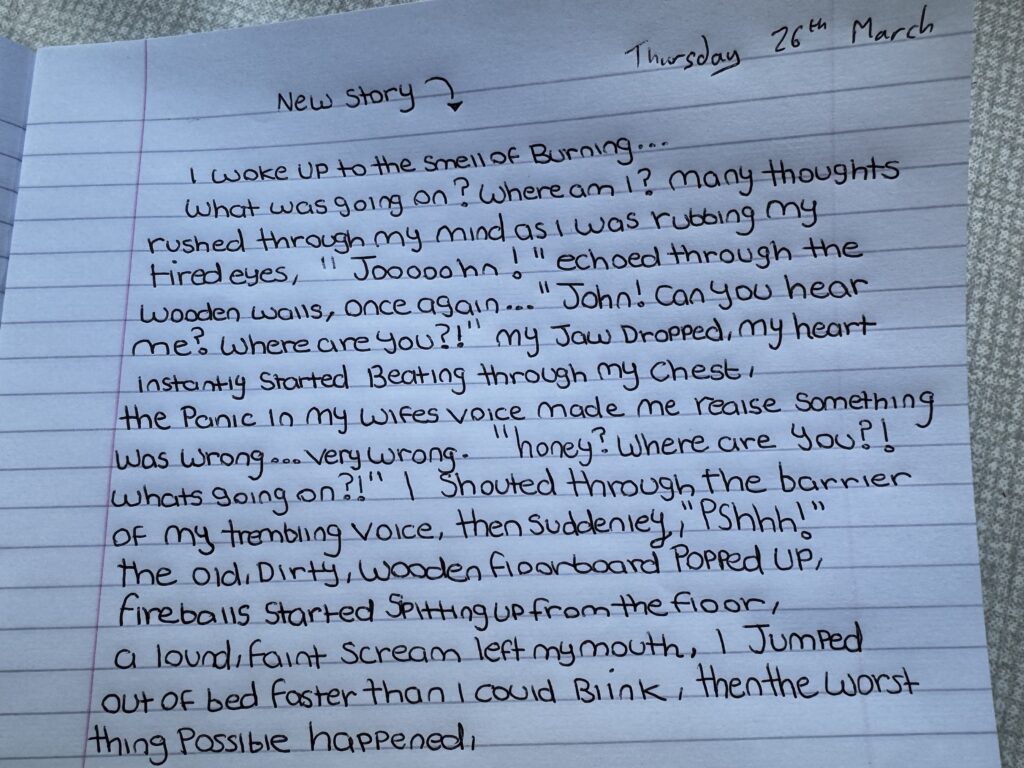 Thursday 26th March
New Story
I woke up to the smell of Burning...
What was going on? Where am I? many thoughts
rushed through my mind as I was rubbing my
tired eyes, "Jooooohn!" echoed through the
wooden walls, once again... "John! Can you hear
me? Where are you?!" my Jaw Dropped, my heart
instantly Started Beating through my Chest,
the Panic in my wifes voice made me reaise Something
was wrong... very wrong. "honey? Where are you?!
whats going on?!" I Shouted through the barrier
of my trembling voice, then suddenley, "PShhh!"
the old, Dirty, wooden floorboard Popped UP,
fireballs Started Spitting up from the floor,
a lound, faint Scream left my mouth, I Jumped
out of bed faster than I could Blink, then the worst
thing Possible happened,